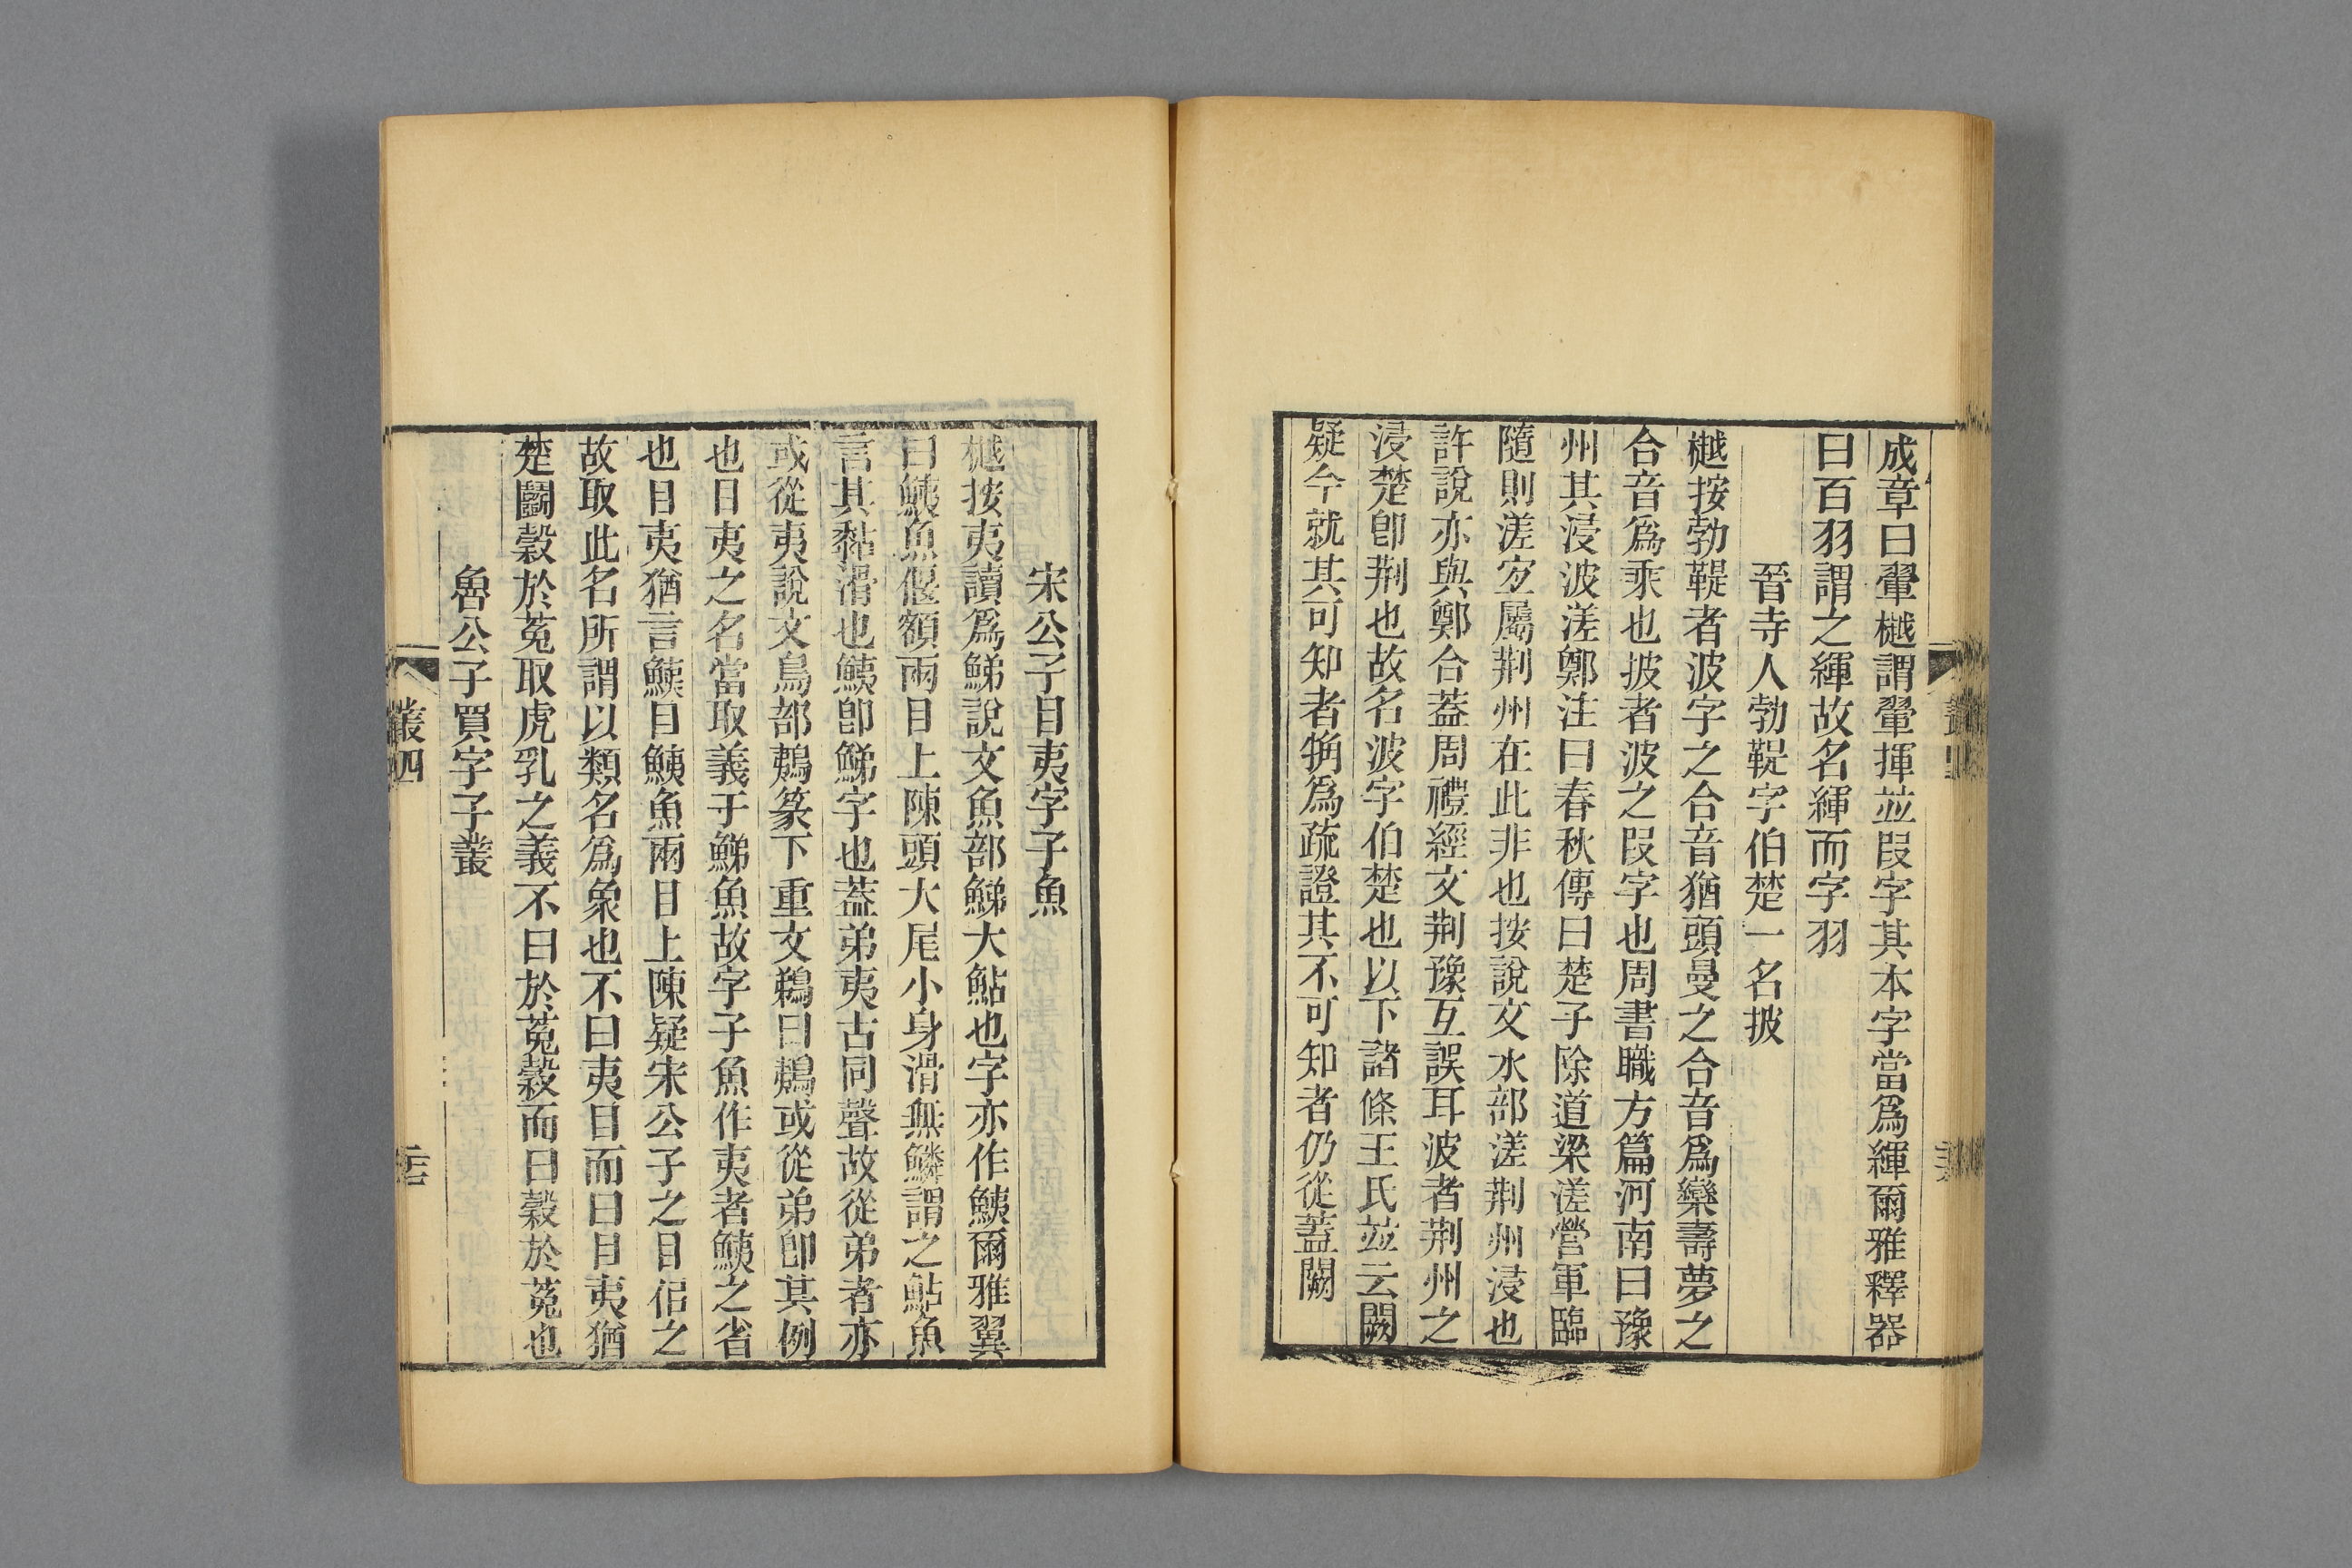 成章曰翬樾謂翬揮並叚字其本字當爲緷爾雅釋器
曰百羽謂之緷故名緷而字羽
晉寺人勃鞮字伯楚一名披
樾按勃鞮者波字之合音猶頭曼之合音爲欒壽夢之
合音爲乘也披者波之叚字也周書職方篇河南曰豫
州其浸波溠鄭注曰春秋傳曰楚子除道梁溠營軍臨
隨則溠宐屬荆州在此非也按說文水部溠荆州浸也
許說亦與鄭合蓋周禮經文荆豫互誤耳波者荆州之
浸楚卽荆也故名波字伯楚也以下諸條王氏竝云闕
疑今就其可知者觕爲疏證其不可知者仍從蓋闕
宋公子目夷字子魚
樾按夷讀爲鮷說文魚部鮷大鮎也字亦作鮧爾雅翼
曰鮧魚偃額兩目上陳頭大尾小身滑無鱗謂之鮎魚
言其黏滑也鮧卽鮷字也蓋弟夷古同聲故從弟者亦
或從夷說文鳥部鶇篆下重文鵜曰鶇或從弟卽其例
也目夷之名當取義于鮷魚故字子魚作夷者鮧之省
也目夷猶言鮧目鮧魚兩目上陳疑宋公子之目佀之
故取此名所謂以類名爲象也不曰夷目而曰目夷猶
楚鬬穀於菟取虎乳之義不曰於菟穀而曰穀於菟也
魯公子買字子叢
叢四